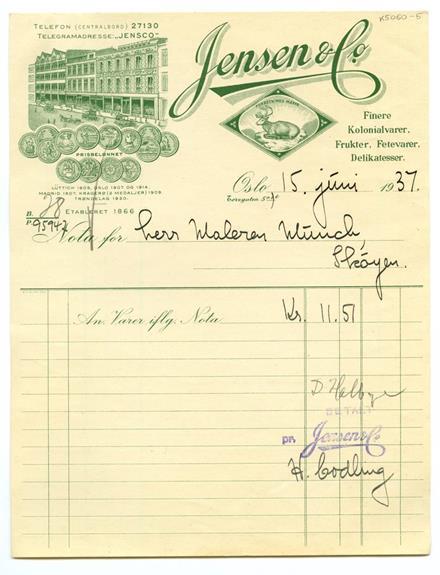 K5060-5
TELEFON (CENTRALBORD) 27130
TELEGRAMADRESSE: „JENSCO"
Jensen & Co.
FORRETNINGS MÆRKE
Finere
Kolonialvarer,
Frukter, Fetevarer,
Delikatesser.
PRISBELØNNET
LÜTTICH 1905, OSLO 1907 OG 1914,
MADRID 1907, KRAGERØ (2 MEDALJER) 1909
TRØNDELAG 1930.
ETABLERET 1866
Oslo, 15. juni 1937.
Torvgaten 5
B. 28
P. 95942
Nota for Herr Maleren Munch,
Skøyen.
An Varer iflg. Nota Kr. 11.51
BETALT
pr. Jensen & Co